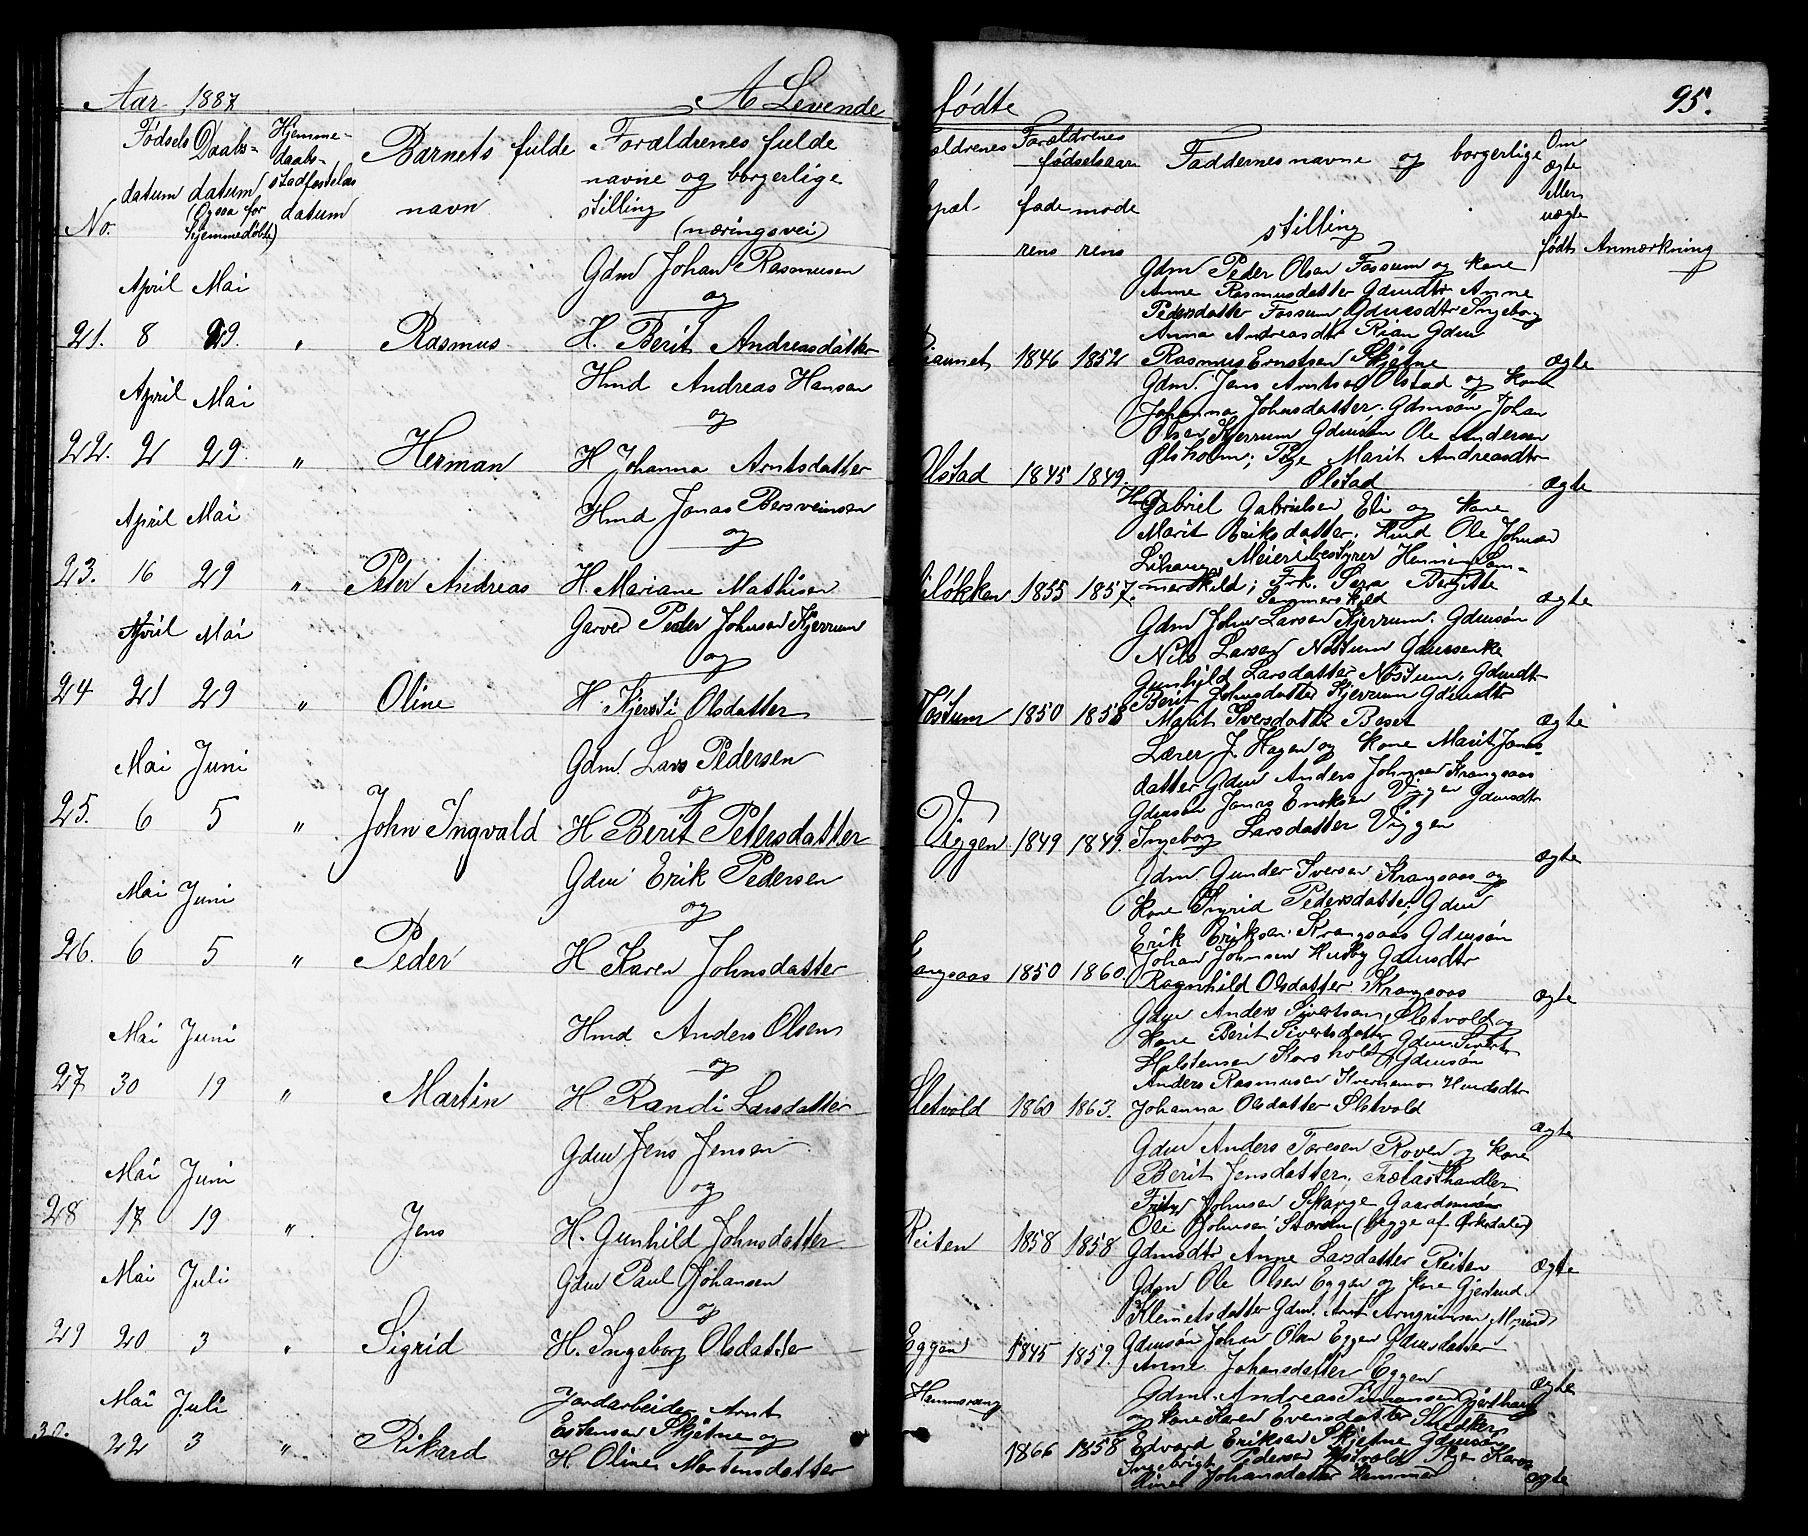 Aar 1887 A Levende fødte 95.
No. Fødsels datum Daabs- datum (Ogsaa for hjemmedøbte) Hjemme- daabs- stadfæstelses datum Barnets fulde navn Forældrenes fulde navne og borgerlige stilling (næringsvei)
ældrenes opæl Forældrenes fødselsaar faderens moderens Faddernes navne og borgerlige stilling Om ægte eller uægte født Anmærkning
April Mai Gdm Johan Rasmussen
og
21. 8 29. " Rasmus. H. Berit Andreasdatter
1846 1852 Gdm Peder Olsen Fossum og kone
Anne Rasmusdatter Gdmdtr Anne
Pedersdatter Fossum, Gdmdtr Ingeborg
Anna Andreasdtr Rian Gdm
Rasmus Erntsen Skjetne ægte
April Mai Hmd Andreas Hansen
og
22. 2 29. " Herman H Johanna Arntsdatter
Olstad 1845 1849. Gdm. Jens Arntsen Olstad og kone
Johanna Johnsdatter. Gdmsøn Johan
Olsen Kjerrum Gdmsøn Ole Andersen
Ølsholm; Pige Marit Andreasdtr
Olstad ægte
April Mai Hmd Jonas Bersveinsen
og
23. 16 29 " Peter Andreas H. Mariane Mathisen
iløkken 1855 1857. Hmd Gabriel Gabrielsen Eli og kone
Marit Eriksdatter. Hmd Ole Johnsen
Lihaug, Meieribestyrer Henrik Sam-
merskild; Frk. Sara Bergitte
Sammerskild ægte
April Mai Garver Peder Johnsen Kjerrum
og
24 21 29 " Oline H. Kjersti Olsdatter
Nostum 1850 1858 Gdm John Larsen Kjerrum. Gdmsøn
Nils Larsen Nostum Gdmsenke
Gunhild Larsdatter Nostum, Gdmdtr
Berit Johnsdatter Kjerrum Gdmdtr
Marit Iversdattr Boset ægte
Mai Juni Gdm. Lars Pedersen
og
25. 6 5 " John Ingvald H Berit Petersdatter
Viggen 1849 1849. Lærer J. Hagen og kone Marit Jons-
datter Gdm Anders Johnsen Krangsaas
Gdmsøn Jonas Eriksen Viggen Gdmsdtr
Ingeborg Larsdatter Viggen ægte
Mai Juni Gdm Erik Pedersen
og
26. 6 5 " Peder H Karen Johnsdatter
angsaas 1850 1860. Gdm Gunder Iversen Krangsaas og
kone Ingrid Pedersdatter, Gdm
Erik Eriksen Krangsaas Gdmsøn
Johan Johnsen Husby Gdmsdtr
Ragnhild Olsdatter Krangsaas ægte
Mai Juni Hmd Anders Olsen
og
27 30 19 " Martin H. Randi Larsdatter
Sletvold 1860 1863. Gdm Anders Sivertsen Sletvold og
kone Berit Sivertsdatter Gdm Sivert
Halstensen Storsholt, Gdmsøn
Anders Rasmussen Kvernmo Hmdsdtr
Johanna Olsdatter Sletvold ægte
Mai Juni Gdm Jens Jensen
og
28 17 19. " Jens H. Gunhild Johnsdatter
Reiten 1858 1858 Gdm Anders Toresen Roven og kone
Berit Jensdatter, Trælasthandler
Johnsen Skauge Gaardmøn
Ole Johnsen Storen (begge af Orkedalen)
Gdmsdtr Anne Larsdatter Reiten ægte
Mai Juli Gdm Paul Johansen
og
29 20 3 " Sigrid H. Ingeborg Olsdatter
Eggen 1845 1859. Gdm Ole Olsen Eggen og kone Gjertrud
Klemetsdatter Gdm. Arnt Arngrimsen
Gdmsøn John Olsen Eggen Gdmsdatter
Anne Johansdatter Eggen ægte
Mai Juli Jordarbeider Arnt
Estensen Skjetne og
30. 22 3 " Rikard H Oline Mortensdatter
Hammervang 1866 1858 Gdm. Andreas Simonsen
og kone Karen Evensdatter
Edvard Eriksen Skjetne Gdmsøn
Ingebrigt Pedersen Pige Karen
Johansdatter ægte